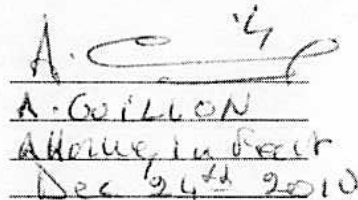 A.
A. GUILLON
Attorney in Fact
Dec 24th 2010